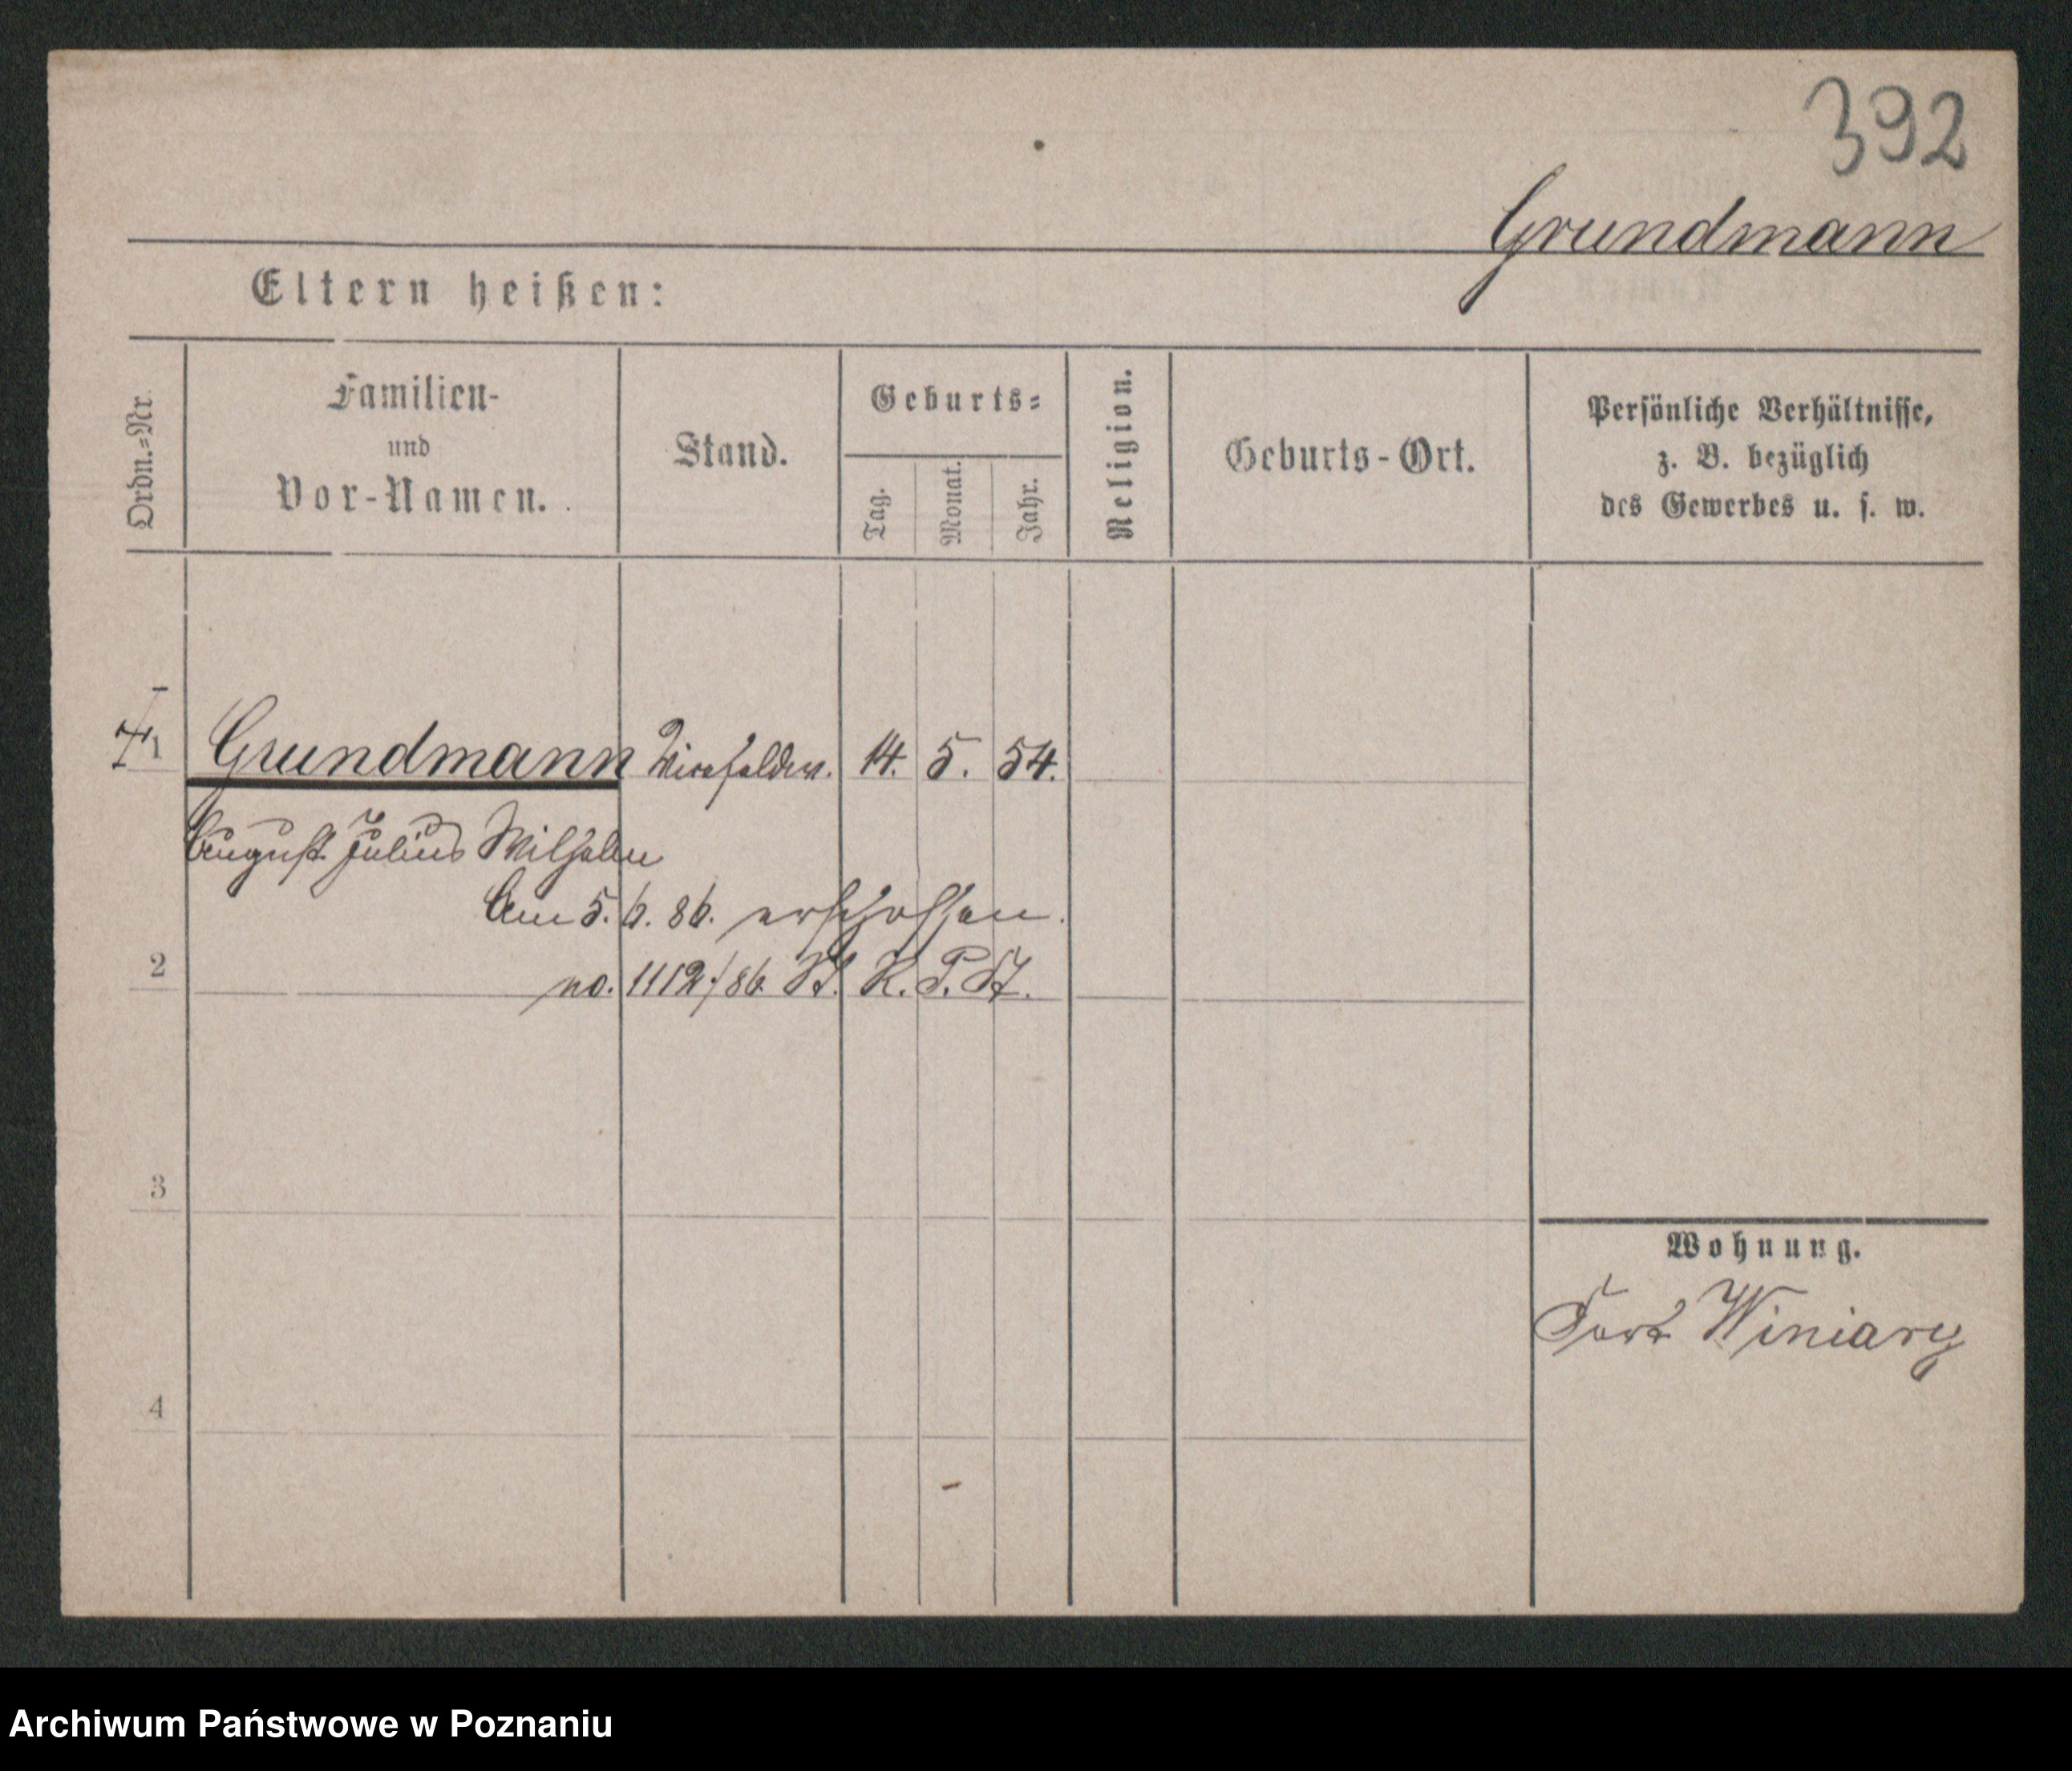 392
Grundmann
Eltern heißen:
Ordn.=Nr.
Familien-
und
Vor-Namen.
Stand.
Geburts=
Tag.
Monat.
Jahr.
Religion.
Geburts-Ort.
Persönliche Verhältnisse,
z. B. bezüglich
des Gewerbes u. s. w.
1 Grundmann Vicefeldw. 14. 5. 54.
August Julius Wilhelm
Am 5. 6. 86. erschossen.
no. 1112/86. St. K. P. St.
2
3
Wohnung.
Fort Winiary
4
Archiwum Państwowe w Poznaniu